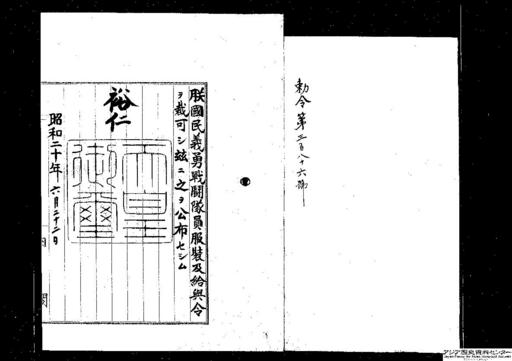 勅令第三百八十六号
朕國民義勇戰鬪隊員服裝及給與令
ヲ裁可シ玆ニ之ヲ公布セシム
裕仁
天皇御璽
昭和二十年六月二十二日
内閣
アジア歴史資料センター